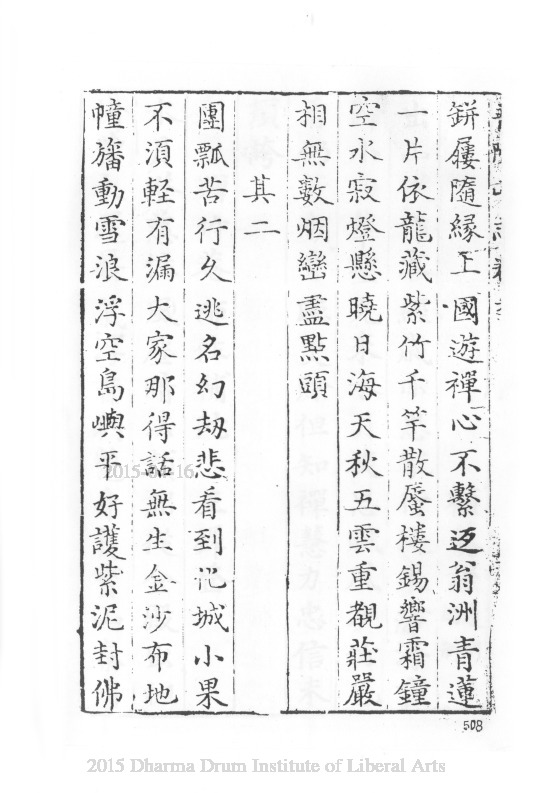 缾屨隨緣上國遊禪心不繫返翁洲青蓮
一片依龍藏紫竹千竿散蜃樓錫響霜鐘
空水寂燈懸曉日海天秋五雲重覩莊嚴
相無數烟巒盡點頭
其二
團瓢苦行久逃名幻刼悲看到化城小果
不湏軽有漏大家那得話無生金沙布地
幢旛動雪浪浮空島嶼平好護紫泥封佛
508
2015-04-16
2015 Dharma Drum Institute of Liberal Arts